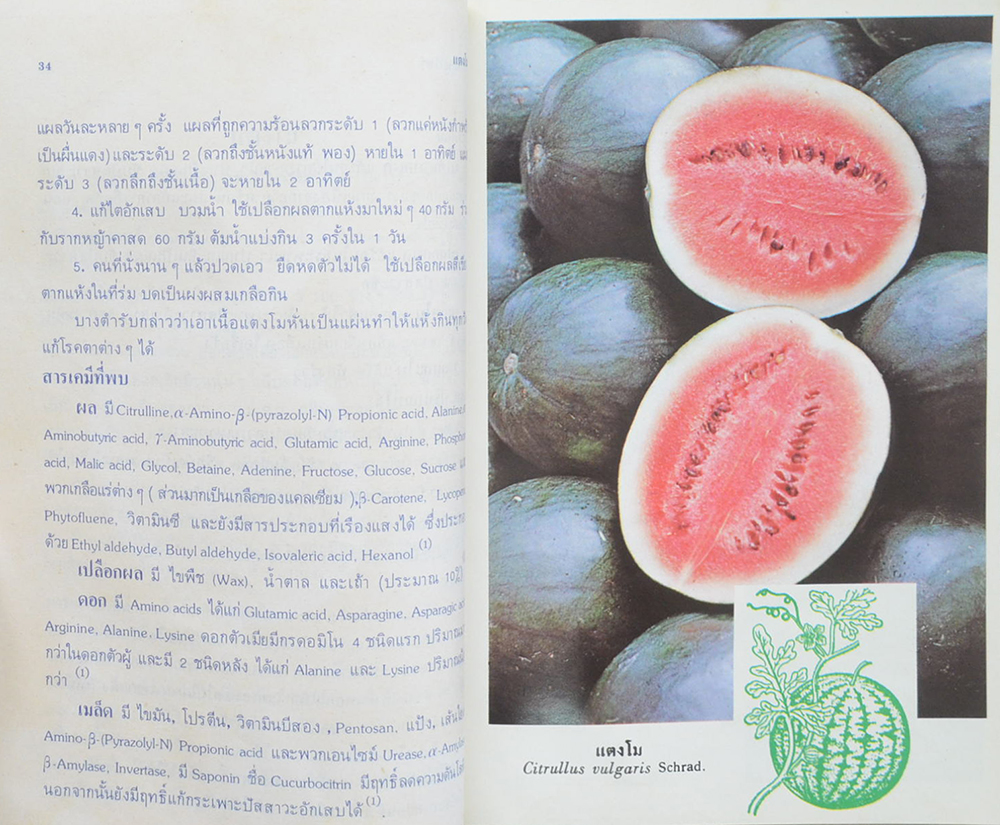 34
แผลวันละหลาย ๆ ครั้ง แผลที่ถูกความร้อนลวกระดับ 1 (ลวกแค่หนังกำพร้
เป็นผื่นแดง) และระดับ 2 (ลวกถึงชั้นหนังแท้ พอง) หายใน 1 อาทิตย์
ระดับ 3 (ลวกลึกถึงชั้นเนื้อ) จะหายใน 2 อาทิตย์
4. แก้ไตอักเสบ บวมน้ำ ใช้เปลือกผลตากแห้งมาใหม่ ๆ 40 กรัม
กับรากหญ้าคาสด 60 กรัม ต้มน้ำแบ่งกิน 3 ครั้งใน 1 วัน
5. คนที่นั่งนาน ๆ แล้วปวดเอว ยืดหดตัวไม่ได้ ใช้เปลือกผลสีเขี
ตากแห้งในที่ร่ม บดเป็นผงผสมเกลือกิน
บางตำรับกล่าวว่าเอาเนื้อแตงโมหั่นเป็นแผ่นทำให้แห้งกินทุกวั
แก้โรคตาต่าง ๆ ได้
สารเคมีที่พบ
ผล มี Citrulline, α-Amino-β-(pyrazolyl-N) Propionic acid, Alanine,
Aminobutyric acid, γ-Aminobutyric acid, Glutamic acid, Arginine, Phosph
acid, Malic acid, Glycol, Betaine, Adenine, Fructose, Glucose, Sucrose
พวกเกลือแร่ต่าง ๆ ( ส่วนมากเป็นเกลือของแคลเซียม ), β-Carotene, Lycope
Phytofluene, วิตามินซี และยังมีสารประกอบที่เรืองแสงได้ ซึ่งประก
ด้วย Ethyl aldehyde, Butyl aldehyde, Isovaleric acid, Hexanol (1)
เปลือกผล มี ไขพืช (Wax), น้ำตาล และเถ้า (ประมาณ 10%)
ดอก มี Amino acids ได้แก่ Glutamic acid, Asparagine, Asparagic
Arginine, Alanine, Lysine ดอกตัวเมียมีกรดอมิโน 4 ชนิดแรก ปริมาณ
กว่าในดอกตัวผู้ และมี 2 ชนิดหลัง ได้แก่ Alanine และ Lysine ปริมาณ
กว่า (1)
เมล็ด มี ไขมัน, โปรตีน, วิตามินบีสอง , Pentosan, แป้ง, เส้นใย
Amino-β-(Pyrazolyl-N) Propionic acid และพวกเอนไซม์ Urease, α-Amyla
β-Amylase, Invertase, มี Saponin ชื่อ Cucurbocitrin มีฤทธิ์ลดความดันโล
นอกจากนั้นยังมีฤทธิ์แก้กระเพาะปัสสาวะอักเสบได้ (1) .
แตงโม
Citrullus vulgaris Schrad.